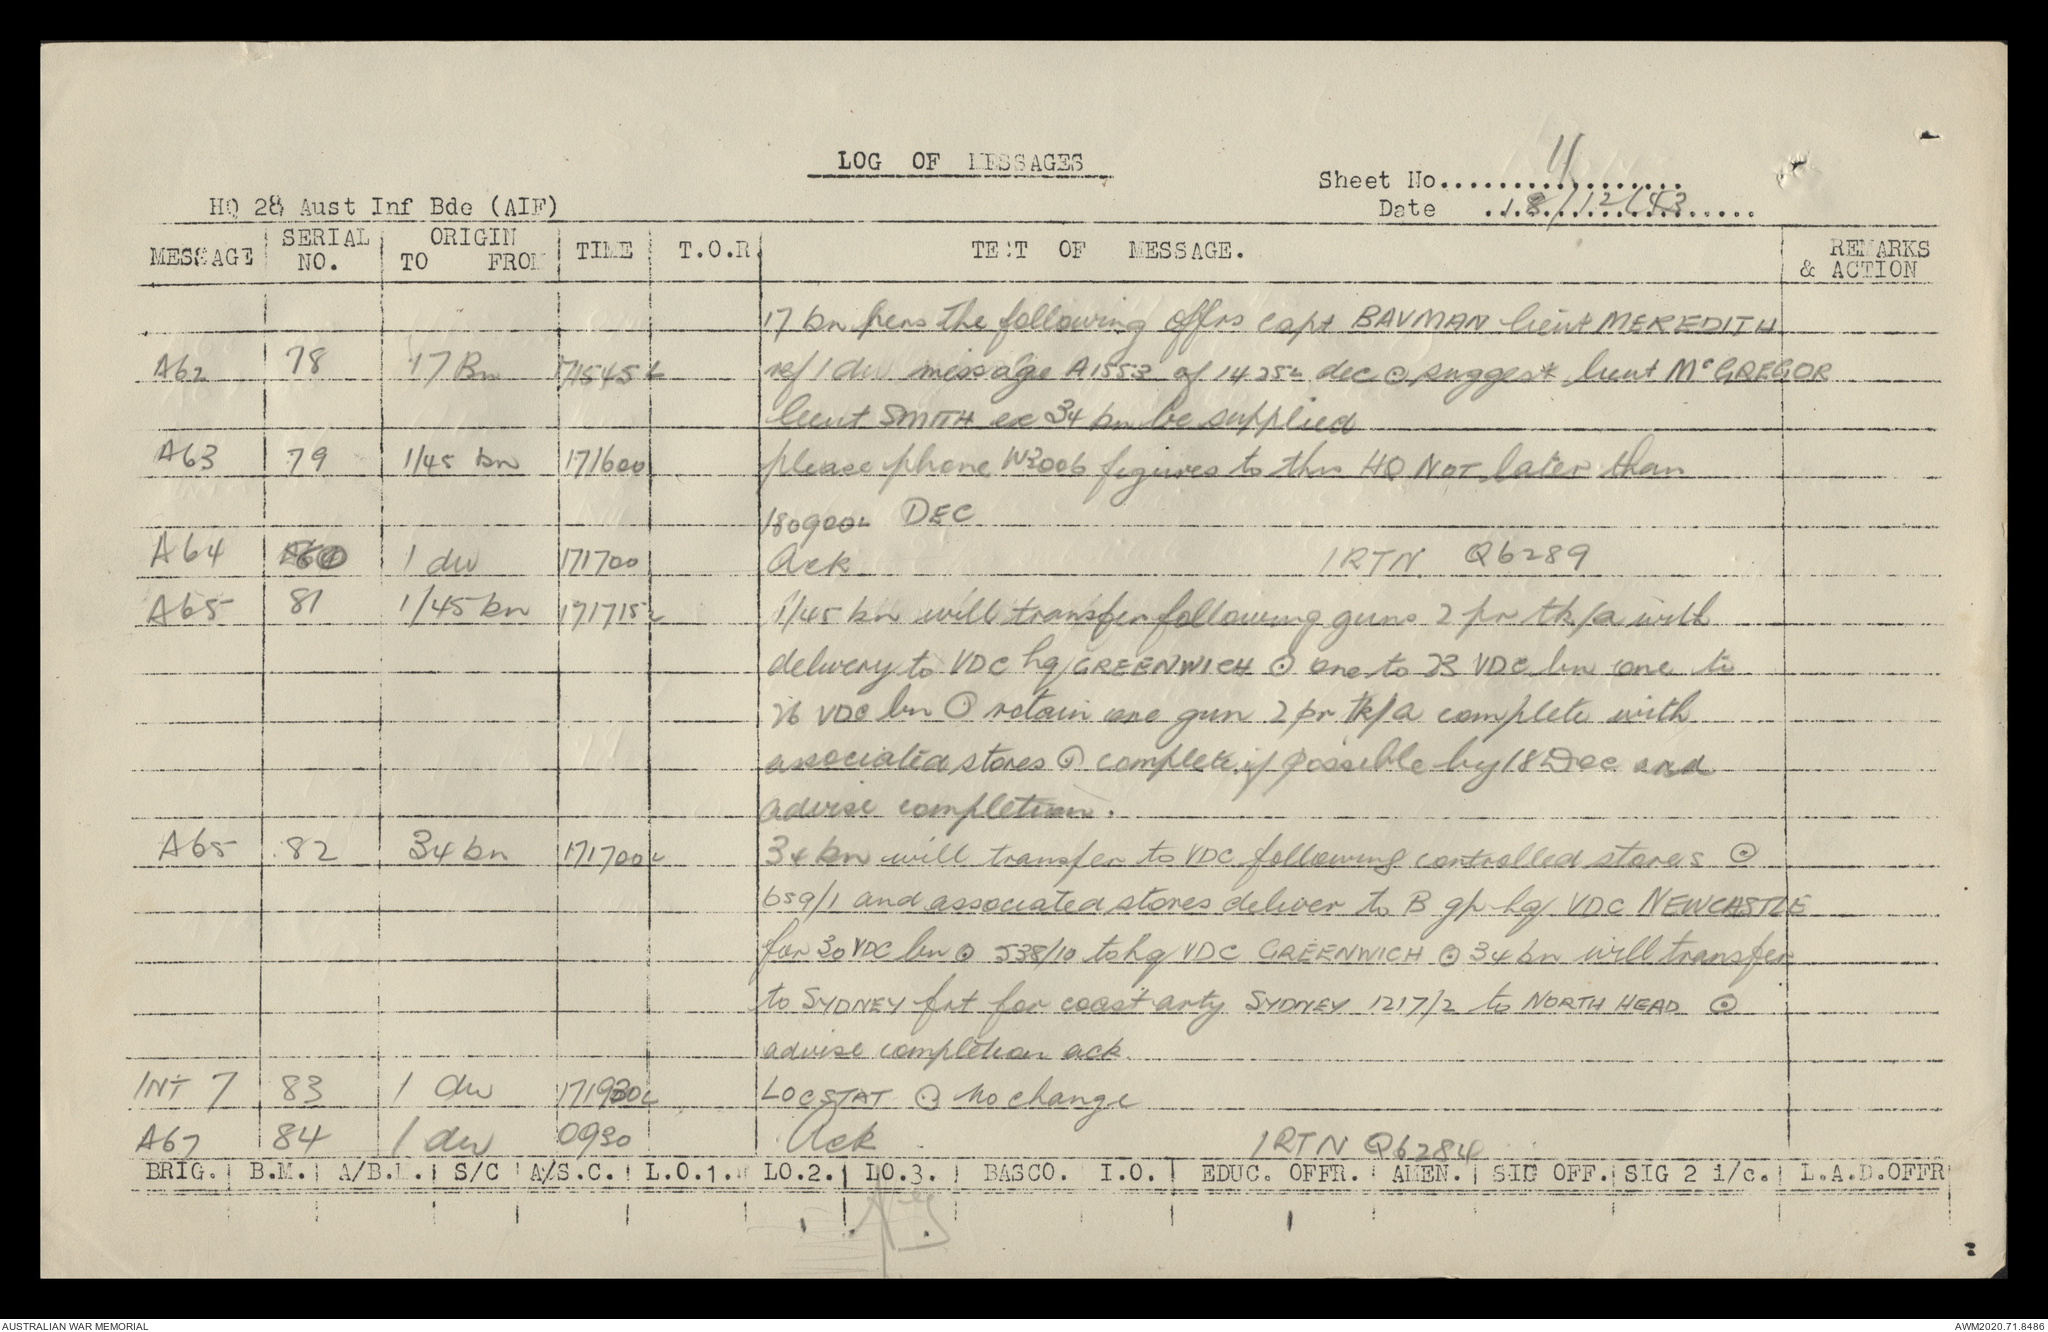 LOG OF MESSAGES
Sheet No................. 11
HQ 28 Aust Inf Bde (AIF)
Date 18/12/43
MESSAGE SERIAL NO. ORIGIN TO FROM TIME T.O.R. TEXT OF MESSAGE. REMARKS & ACTION
17 bn pers the following offrs Capt BAVMAN lieut MEREDITH
A62 78 17 Bn 171545L ref 1 div message A1553 of 14 252 dec ⊙ suggest lieut McGREGOR
lieut SMITH ex 34 bn be supplied
A63 79 1/45 bn 171600 please phone W3006 figures to this HQ NOT later than
180900L DEC
A64 80 1 div 171700 Ack 1RTN Q6289
A65 81 1/45 bn 171715L 1/45 bn will transfer following guns 2 pr tk/a with
delivery to VDC hq GREENWICH ⊙ one to 23 VDC bn one to
26 VDC bn ⊙ retain one gun 2 pr tk/a complete with
associated stores ⊙ complete if possible by 18 Dec and
advise completion.
A65 82 34 bn 171700L 34 bn will transfer to VDC following controlled stores ⊙
659/1 and associated stores deliver to B gp hq VDC NEWCASTLE
for 30 VDC bn ⊙ 538/10 to hq VDC GREENWICH ⊙ 34 bn will transfer
to SYDNEY frt for coast arty SYDNEY 1217/2 to NORTH HEAD ⊙
advise completion ack.
INT 7 83 1 div 171930L LOCSTAT ⊙ No change
A67 84 1 div 0930 Ack 1RTN Q6284
BRIG. B.M. A/B.M. S/C A/S.C. L.O.1. LO.2. LO.3. BASCO. I.O. EDUC. OFFR. AMEN. SIG OFF. SIG 2 i/c. L.A.D.OFFR
AUSTRALIAN WAR MEMORIAL
AWM2020.71.8486